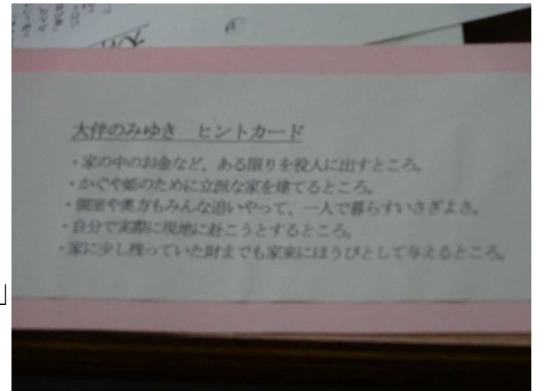 大伴のみゆき ヒントカード
・家の中のお金など、ある限りを役人に出すところ。
・かぐや姫のために立派な家を建てるところ。
・側室や奥方もみんな追いやって、一人で暮らすいさぎよさ。
・自分で実際に現地に赴こうとするところ。
・家に少し残っていた財までも家来にほうびとして与えるところ。